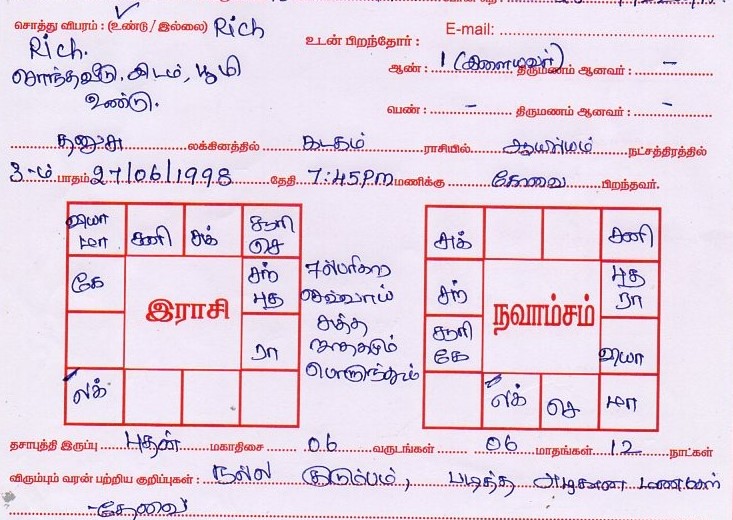 சொத்து விபரம் : (உண்டு / இல்லை) Rich
Rich.
சொந்தவீடு, இடம், பூமி
உண்டு.
E-mail:
உடன் பிறந்தோர் :
ஆண் : 1 (இளையவர்) திருமணம் ஆனவர் : -
பெண் : - திருமணம் ஆனவர் : -
தனுசு லக்கினத்தில் கடகம் ராசியில் ஆயில்யம் நட்சத்திரத்தில்
3-ம் பாதம் 27/06/1998 தேதி 7:45PM மணிக்கு கோவை பிறந்தவர்.
வியா
மா
சனி
சுக்
சூரி
செ
கே
சந்
புத
ரா
லக்
இராசி
7ல்
செவ்வாய்
சுத்த
ஜாதகமும்
பொருந்தும்
சுக்
சனி
சந்
புத
ரா
சூரி
கே
வியா
லக்
செ
மா
நவாம்சம்
தசாபுத்தி இருப்பு புதன் மகாதிசை 06 வருடங்கள் 06 மாதங்கள் 12 நாட்கள்
விரும்பும் வரன் பற்றிய குறிப்புகள் : நல்ல குடும்பம், படித்த அழகான மணமகன்
-தேவை